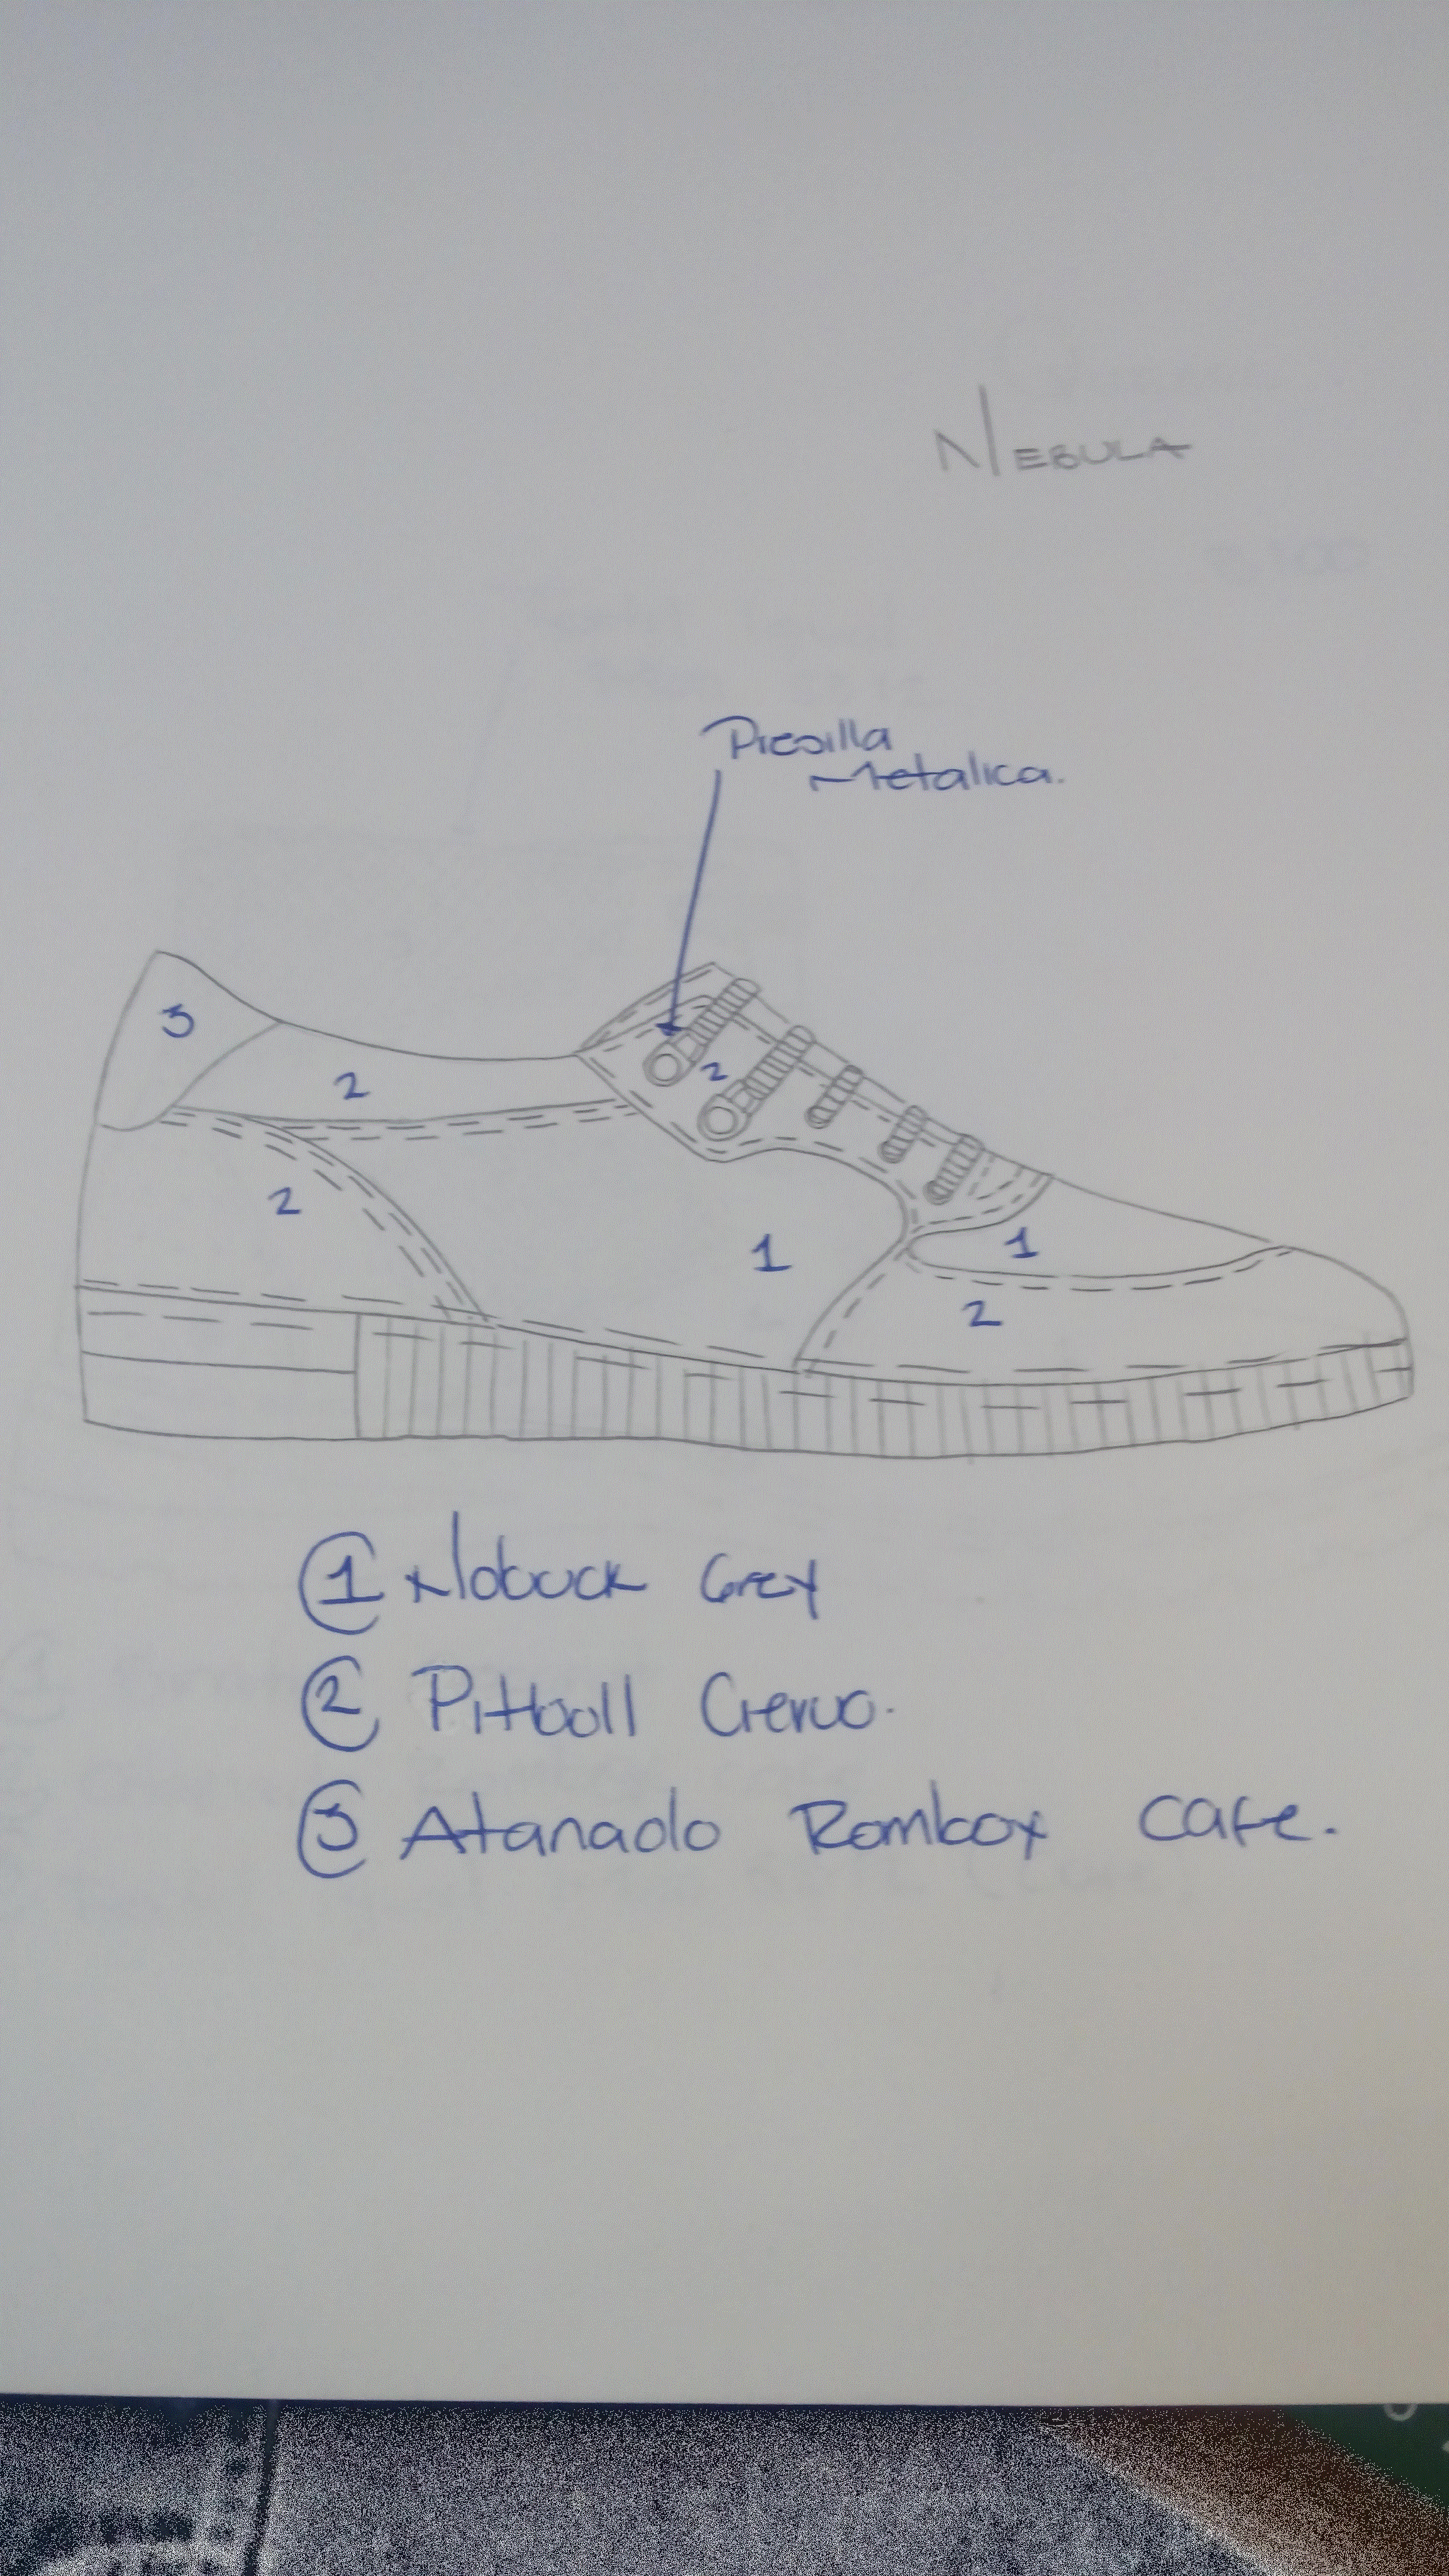 NEBULA
Piesilla
Metalica.
3
2
2
2
1
1
2
1 Nobuck Grey
2 Pitboll Ciervo.
3 Atanado Rombox Cafe.